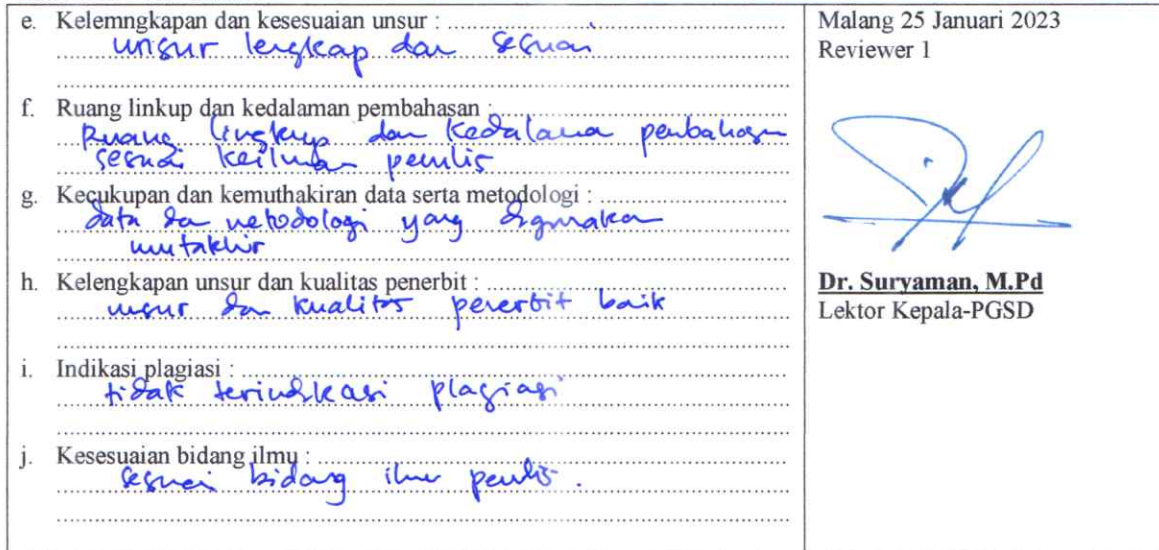 e. Kelemngkapan dan kesesuaian unsur :
unsur lengkap dan sesuai
f. Ruang linkup dan kedalaman pembahasan :
Ruang lingkup dan kedalaman pembahasan
sesuai keilmuan penulis
g. Kecukupan dan kemuthakiran data serta metodologi :
data dan metodologi yang digunakan
mutakhir
h. Kelengkapan unsur dan kualitas penerbit :
unsur dan kualitas penerbit baik
i. Indikasi plagiasi :
tidak terindikasi plagiasi
j. Kesesuaian bidang ilmu :
sesuai bidang ilmu penulis.
Malang 25 Januari 2023
Reviewer 1
Dr. Suryaman, M.Pd
Lektor Kepala-PGSD